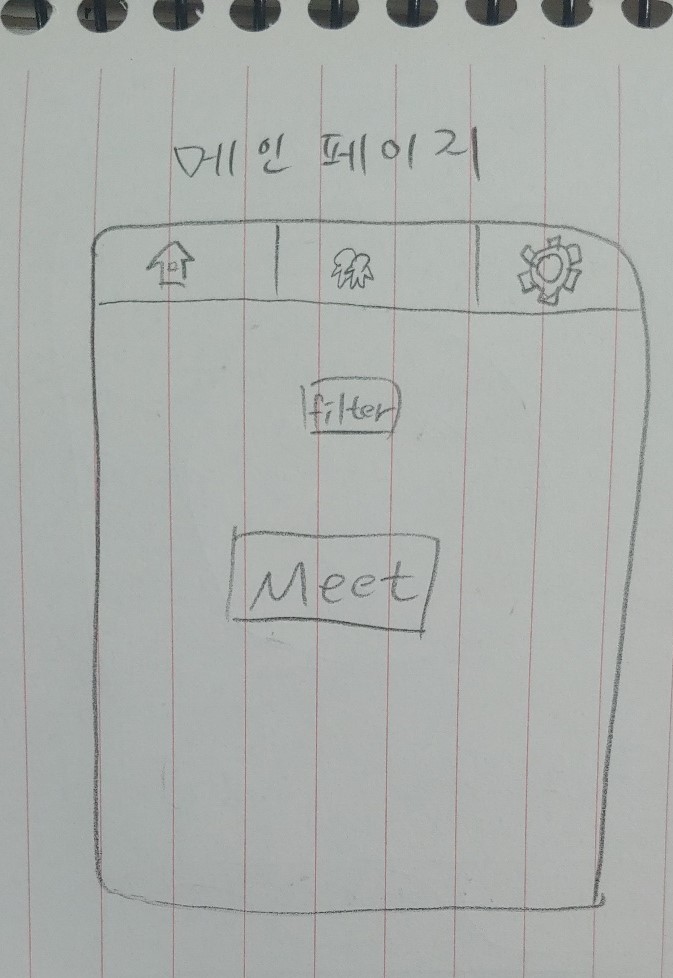 메인 페이지
filter
Meet